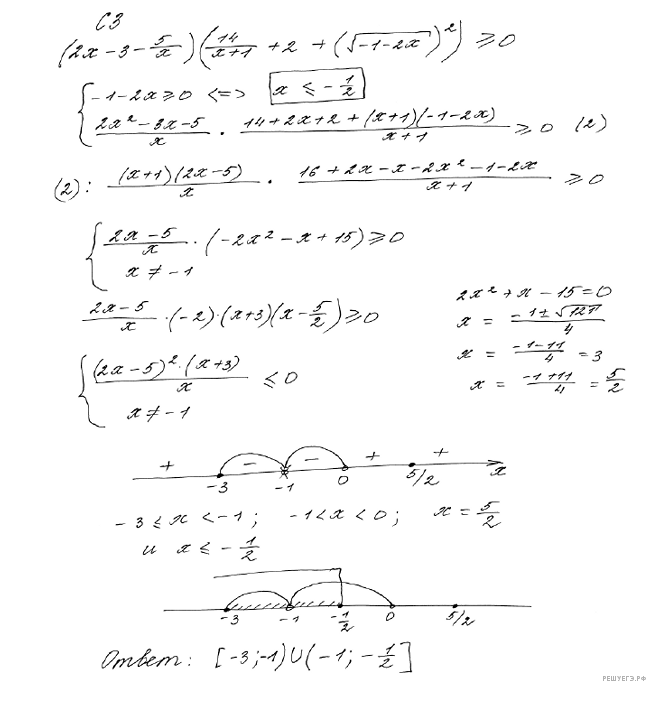 С3
(2x-3-5/x)(14/(x+1) +2 +(√(-1-2x))²) ≥0
{-1-2x≥0 <=> x ≤ -1/2
(2x²-3x-5)/x · (14+2x+2+(x+1)(-1-2x))/(x+1) ≥0 (2)
(2): (x+1)(2x-5)/x · (16+2x-x-2x²-1-2x)/(x+1) ≥0
{(2x-5)/x · (-2x²-x+15)≥0
x≠-1
(2x-5)/x ·(-2)·(x+3)(x-5/2)≥0
2x²+x-15=0
x = (-1±√121)/4
x = (-1-11)/4 =3
x = (-1+11)/4 = 5/2
{(2x-5)²·(x+3)/x ≤0
x≠-1
+ - - + +
-3 -1 0 5/2 x
-3≤x<-1; -1<x<0; x=5/2
и x≤-1/2
-3 -1 -1/2 0 5/2
Ответ: [-3;-1)∪(-1;-1/2]
РЕШУЕГЭ.РФ